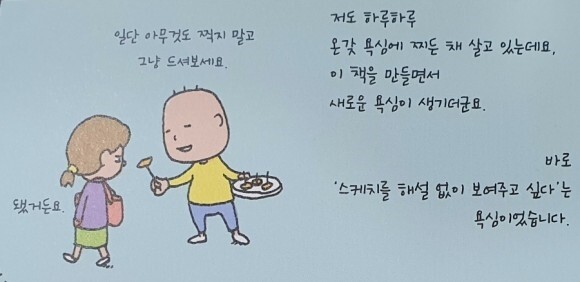 일단 아무것도 찍지 말고
그냥 드셔보세요.
됐거든요.
저도 하루하루
온갖 욕심에 찌든 채 살고 있는데요,
이 책을 만들면서
새로운 욕심이 생기더군요.
바로
'스케치를 해설 없이 보여주고 싶다'는
욕심이었습니다.